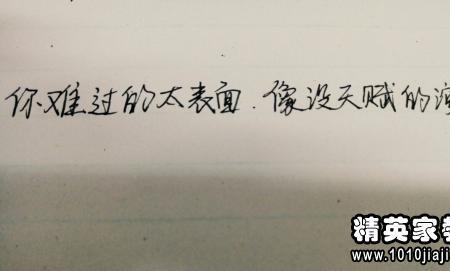 你难过的太表面.像没天赋的演
精英家教
www.1010jiaji